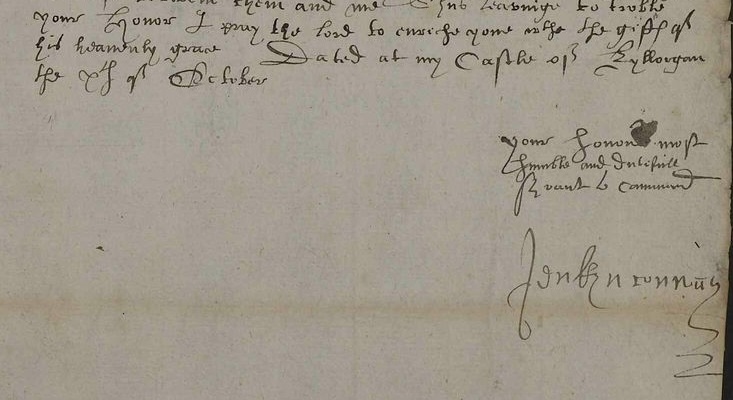 them and me Thus leavinge to troble
your Honor I pray the lord to enriche youe wthe the gift of
his heavenly grace Dated at my Castle of Kyllorgan
the xth of October
your honors most
humble and dutifull
Srvant to Command
Jenkyn Conway